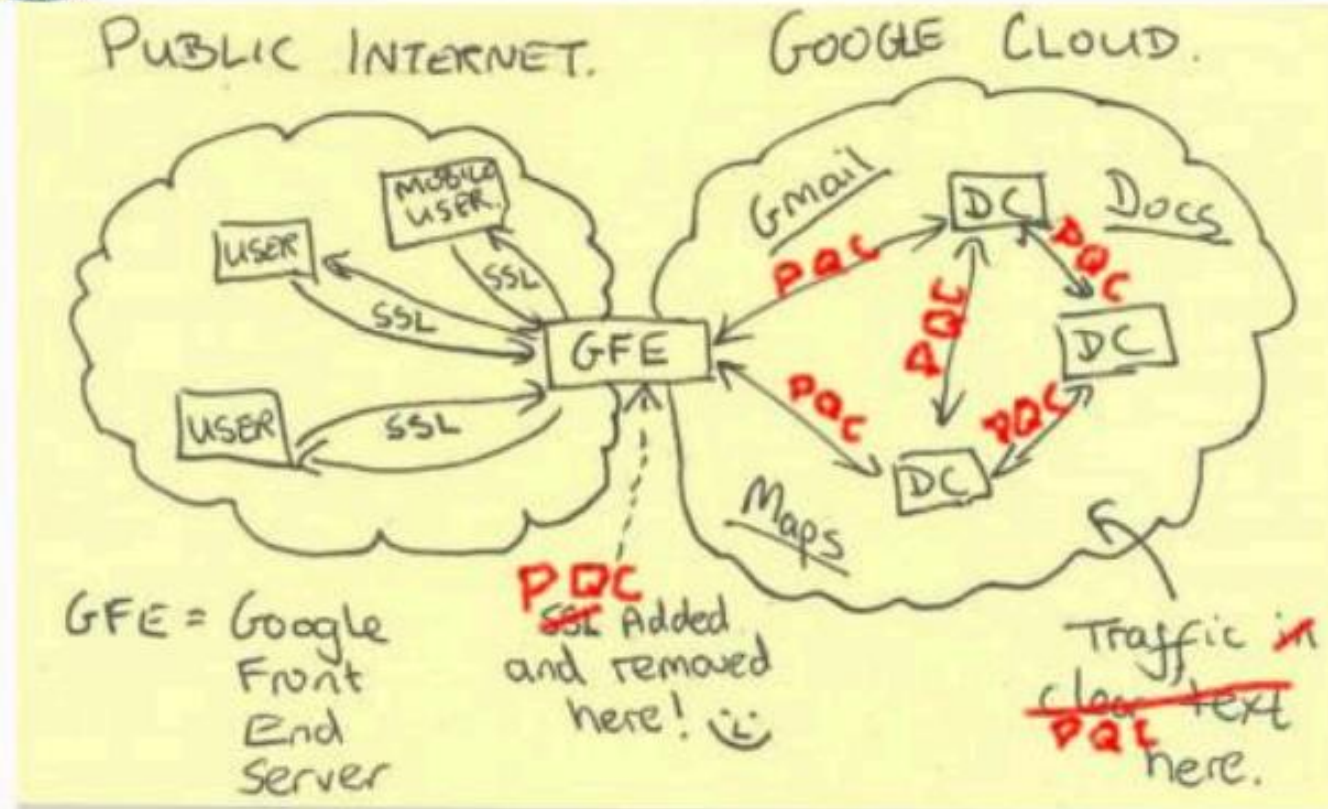 PUBLIC INTERNET.
GOOGLE CLOUD.
MOBILE
USER.
USER
SSL
SSL
USER
SSL
GFE
Gmail
PQC
DC
Docs
PQC
PQC
DC
PQC
PQC
DC
Maps
GFE = Google
Front
End
Server
PQC
SSL Added
and removed
here!
Traffic in
clear text
PQC
here.